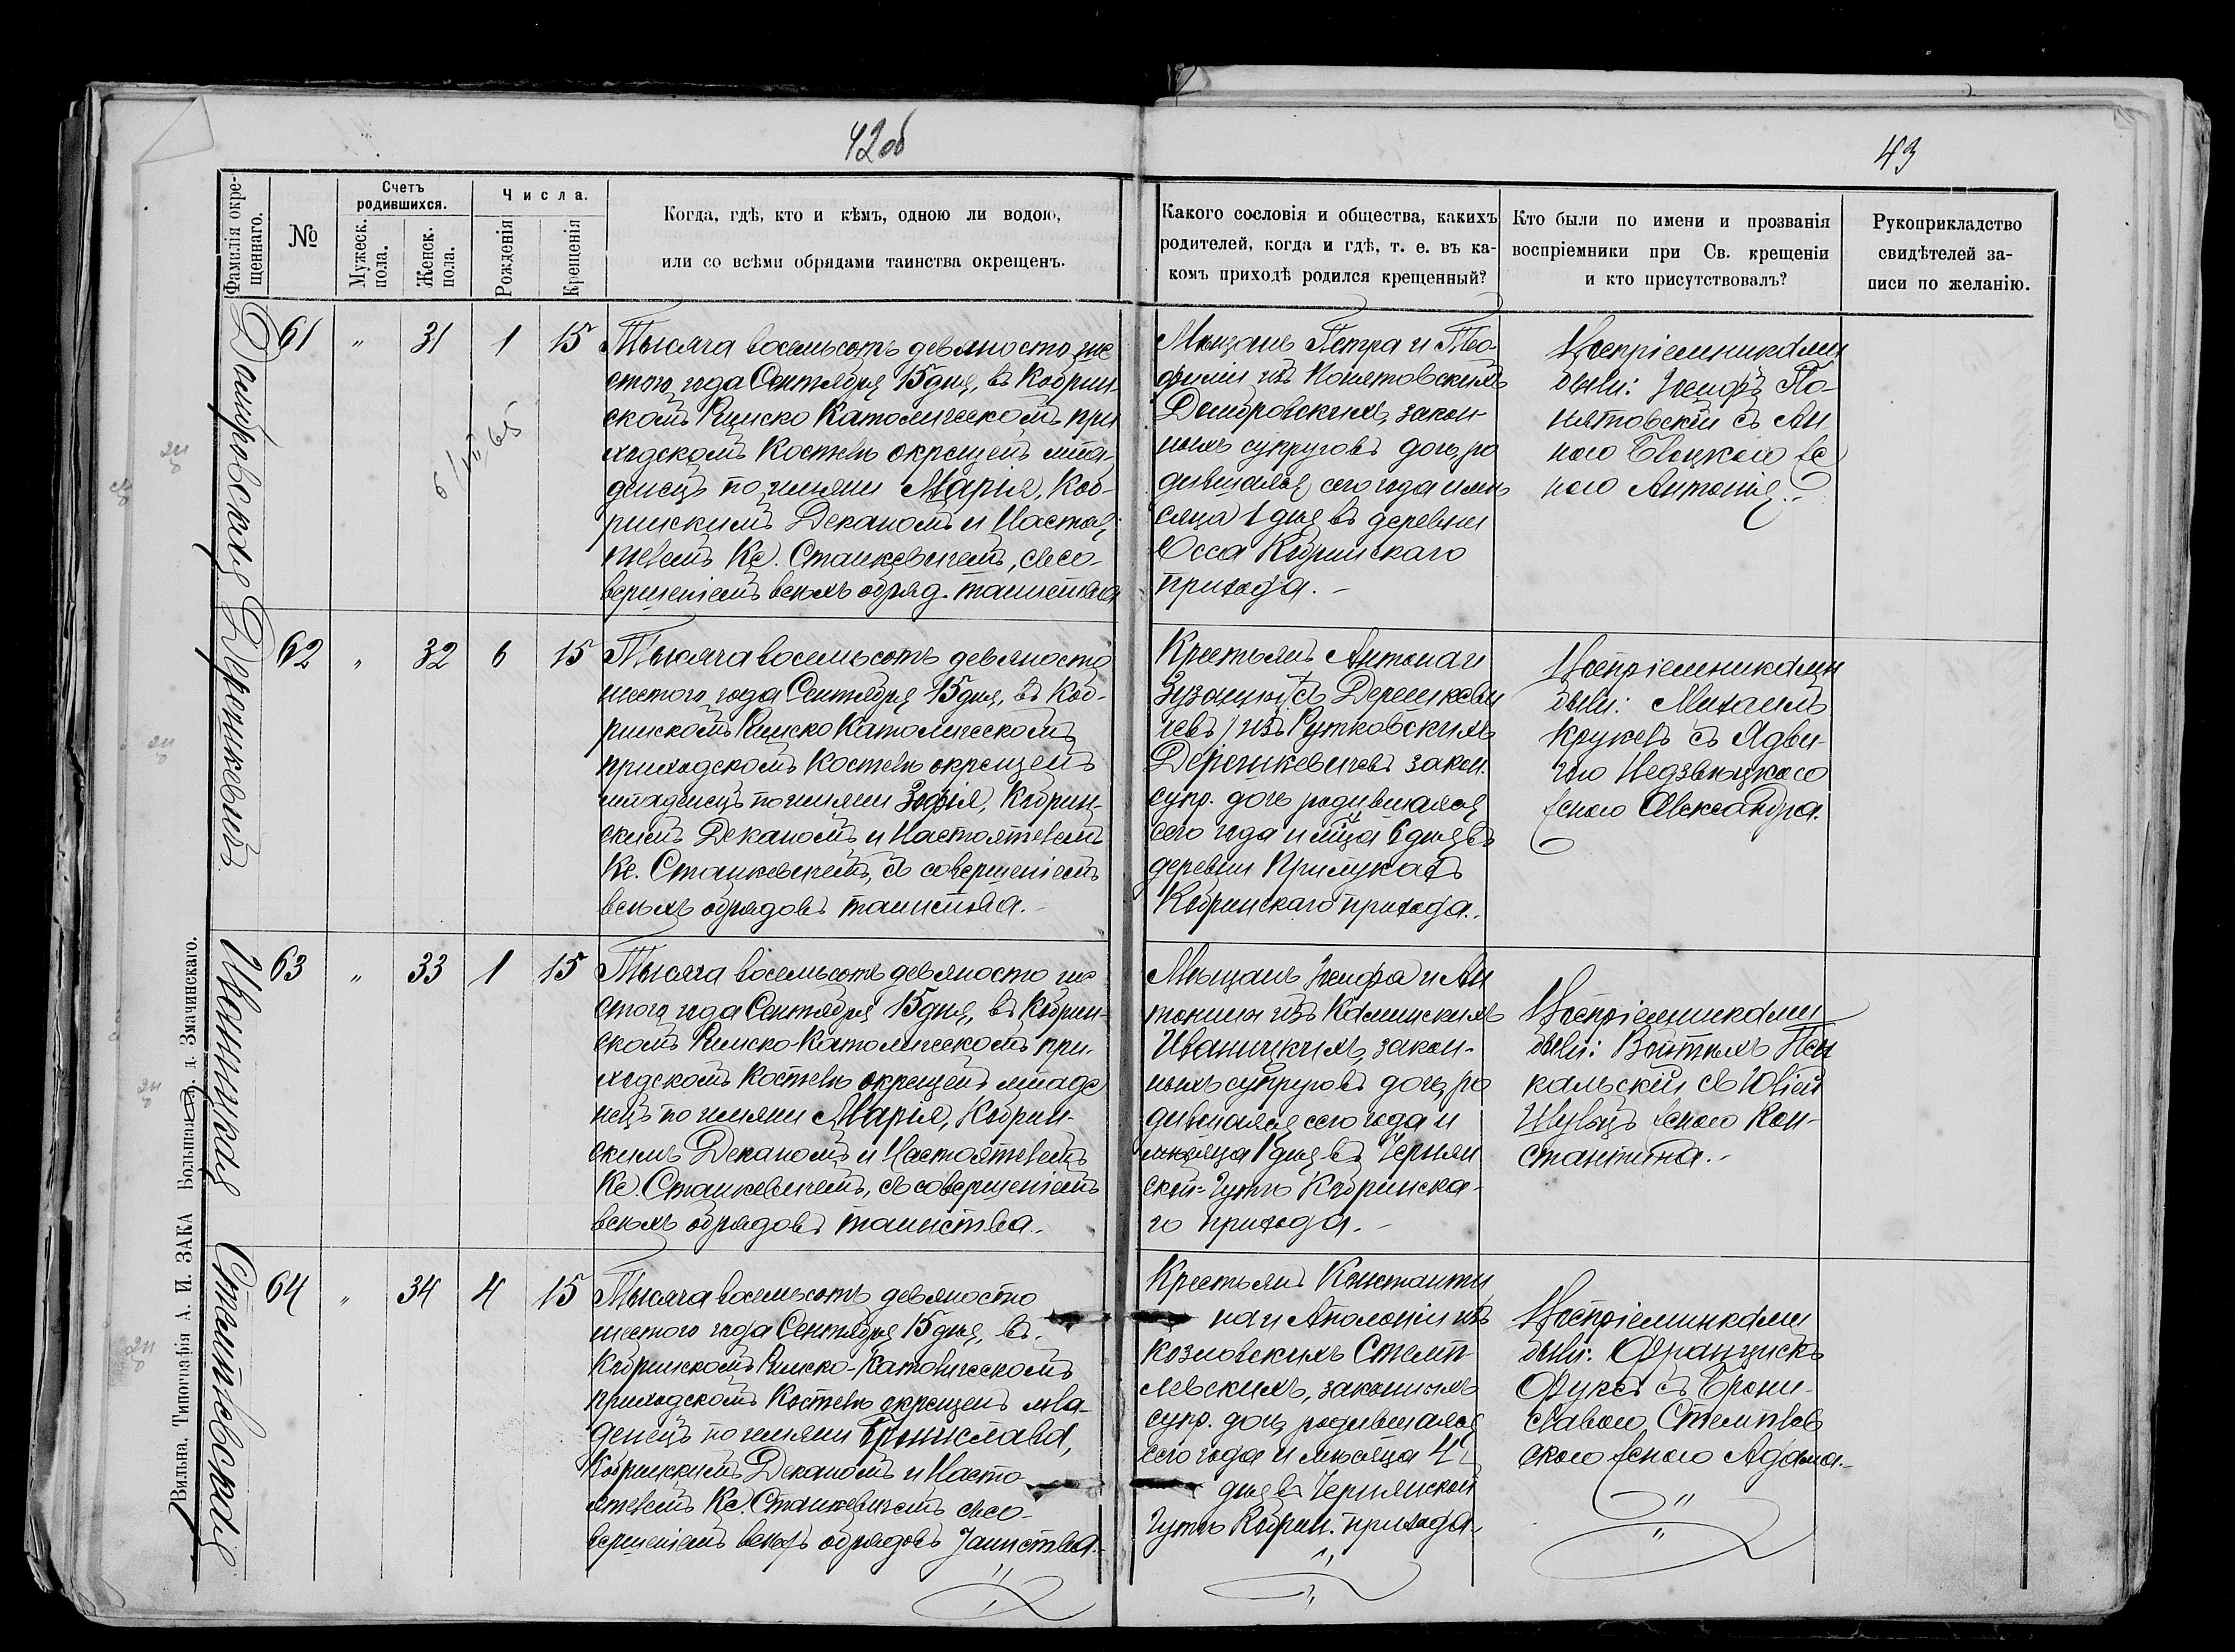 42об
43
Фамилія окре-
щеннаго.
№
Счетъ
родившихся.
Мужеск.
пола.
Женск.
пола.
Числа.
Рожденія
Крещенія
Когда, гдѣ, кто и кѣмъ, одною ли водою,
или со всѣми обрядами таинства окрещенъ.
Какого сословія и общества, какихъ
родителей, когда и гдѣ, т. е. въ ка-
комъ приходѣ родился крещенный?
Кто были по имени и прозванія
воспріемники при Св. крещеніи
и кто присутствовалъ?
Рукоприкладство
свидѣтелей за-
писи по желанію.
Домбровская
61 " 31 1 15
Тысяча восемьсотъ девяносто ше
стого года Сентября 15 дня, въ Кобрин-
скомъ Римско Католическомъ при
ходскомъ Костелѣ окрещенъ мла-
денецъ по имени Марія, Коб-
ринскимъ Деканомъ и Настоя-
телемъ Кс. Станкевичемъ, съ со-
вершеніемъ всѣхъ обряд. таинства
Мѣщанъ Петра и Тео-
филіи изъ Понятовскихъ
Домбровскихъ, закон-
ныхъ супруговъ дочь, ро
дившаяся сего года и мѣ
сяца 1 дня въ деревни
Осса Кобринскаго
прихода.-
Воспріемниками
были: Іосифъ По-
нятовскій съ Ан
ною женою Антонія.-
Дерешкевичъ
62 " 32 6 15
Тысяча восемьсотъ девяносто
шестого года Сентября 15 дня, въ Коб-
ринскомъ Римско Католическомъ
приходскомъ Костелѣ окрещенъ
младенецъ по имени Зофія, Кобрин-
скимъ Деканомъ и Настоятелемъ
Кс. Станкевичемъ, съ совершеніемъ
всѣхъ обрядовъ таинства.-
Крестьянъ Антона и
Зузанны (съ Дерешкеви
чевъ) изъ Рутковскихъ
Дерешкевичевъ закон.
супр. дочь родившаяся
сего года и м-ца 6 дня въ
деревни Прилукахъ
Кобринскаго прихода.-
Воспріемниками
были: Михаилъ
Кружель съ Ядви-
гою Недзвѣцкою
женою Александра.
Иваницкая
63 " 33 1 15
Тысяча восемьсотъ девяносто ше
стого года Сентября 15 дня, въ Кобрин-
скомъ Римско-Католическомъ при-
ходскомъ Костелѣ окрещенъ младе
нецъ по имени Марія, Кобрин-
скимъ Деканомъ и Настоятелемъ
Кс. Станкевичемъ, съ совершеніемъ
всѣхъ обрядовъ таинства.-
Мѣщанъ Іосифа и Ан
тонины изъ Каминскихъ
Иваницкихъ, закон-
ныхъ супруговъ дочь, ро
дившаяся сего года и
мѣсяца 1 дня въ Чернян
ской-Гутѣ Кобринска-
го прихода.-
Воспріемниками
были: Войтѣхъ Пен
кальскій съ Юліею
Шульцъ женою Кон-
стантина.-
Стемплевская
64 " 34 4 15
Тысяча восемьсотъ девяносто
шестого года Сентября 15 дня, въ
Кобринскомъ Римско-Католическомъ
приходскомъ Костелѣ окрещенъ мла-
денецъ по имени Брониславa,
Кобринскимъ Деканомъ и Насто-
ятелемъ Кс. Станкевичемъ съ со-
вершеніемъ всѣхъ обрядовъ Таинства.-
Крестьянъ Константи
на и Аполоніи изъ
Козловскихъ Стемп-
левскихъ, законныхъ
супр. дочь, родившаяся
сего года и мѣсяца 4
дня въ Чернянской
Гутѣ Кобрин. прихода.
Воспріемниками
были: Францискъ
Фуксъ съ Брони-
славою Стемплев
скою женою Адама.-
Вильна, Типографія А. И. ЗАКА Большая д. Змачинскаго.